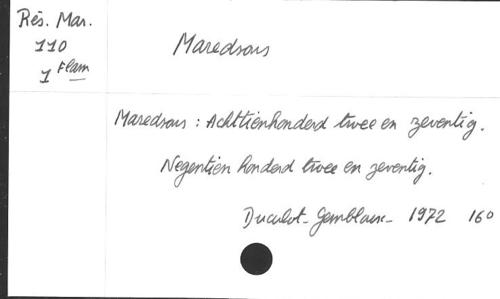 Rés. Mar.
110
1 Flam
Maredsous
Maredsous : Achttienhonderd twee en zeventig.
Negentien honderd twee en zeventig.
Duculot - Gembloux - 1972 160